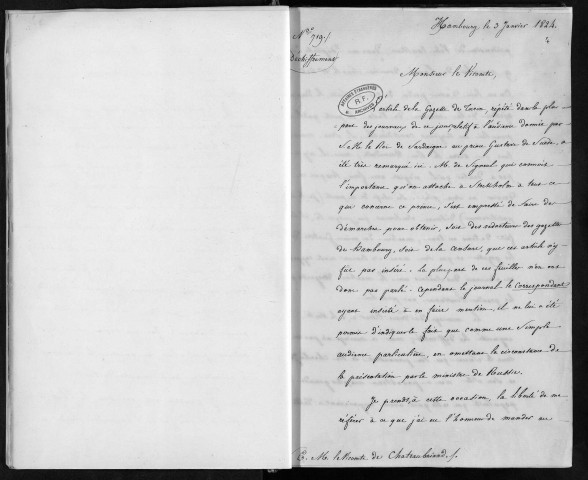 Hambourg le 3 Janvier 1824.
4
Nº 719./
Déchiffrement
Monsieur le Vicomte,
AFFAIRES ETRANGERES
R.F.
ARCHIVES
L'article de la Gazette de Turin, répété dans la plu
part des journaux de ce jour, relatif à l'audience donnée par
S. M. le Roi de Sardaigne au prince Gustave de Suède, a
été très remarqué ici. M. de Signeul qui connait
l'importance qu'on attache à Stockholm à tout ce
que concerne ce prince, s'est empressé de faire des
démarches pour obtenir, soit des rédacteurs des gazettes
de Hambourg, soit de la censure, que cet article n'y
fût pas inséré. La plupart de ces feuilles n'en ont
donc pas parlé. Cependant le journal le Correspondant
ayant insisté à en faire mention, il ne lui a été
permis d'indiquer le fait que comme une simple
audience particulière, en omettant la circonstance de
la présentation par le ministre de Russie.
Je prends, à cette occasion, la liberté de me
référer à ce que j'ai eu l'honneur de mander au
E. M. le Vicomte de Chateaubriand./.